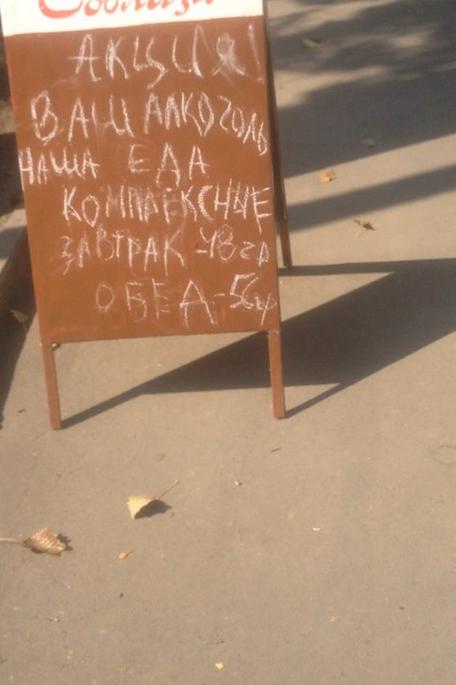 Соблазн
АКЦИЯ!
ВАШ АЛКОГОЛЬ
НАША ЕДА
КОМПЛЕКСНЫЕ
ЗАВТРАК -48гр
ОБЕД-56гр